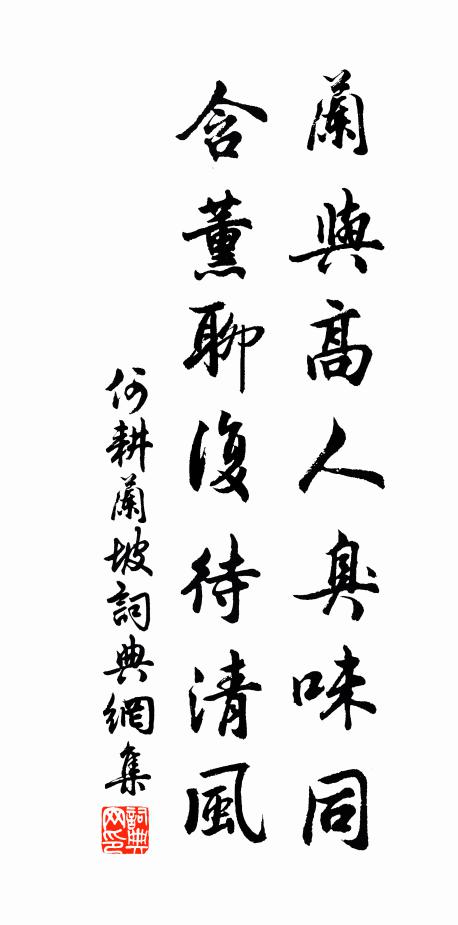 蘭與高人臭味同
含薰聊復待清風
何耕蘭坡詞典網集
詞典网印